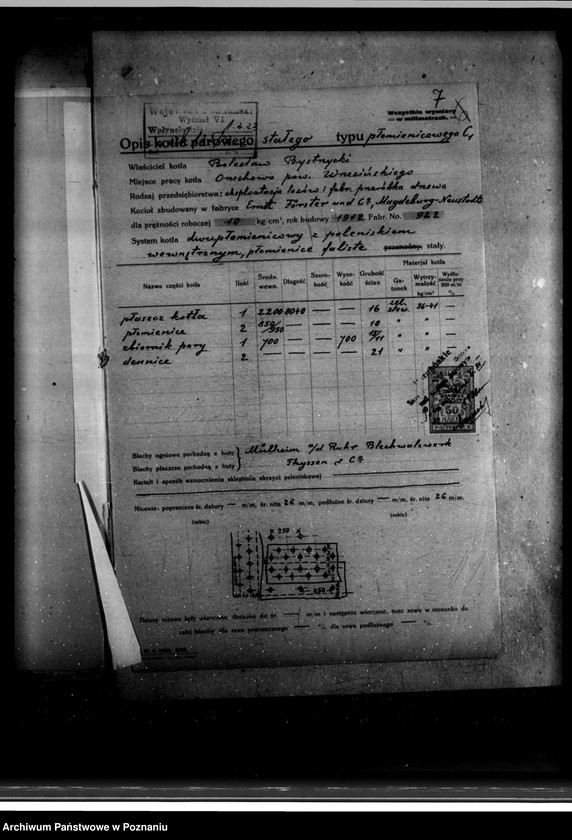 7
Wszystkie wymiary
w milimetrach.
Wydział VI
Wpłynęło
Opis kotła parowego stałego typu płomienicowego
Właściciel kotła Bolesław Bystrzycki
Miejsce pracy kotła Orzechowo pow. Wrzesińskiego
Rodzaj przedsiębiorstwa: eksploatacja lasów i fabr. przeróbka drzewa
Kocioł zbudowany w fabryce Ernst Förster und Co, Magdeburg-Neustadt
dla prężności roboczej 10 kg/cm², rok budowy 1912 Fabr. No. 922
System kotła dwupłomienicowy z paleniskiem
wewnętrznym, płomienice faliste przenośny, stały.
Nazwa części kotła Ilość Średn. wewn. Długość Szerokość Wysokość Grubość ścian Materjał kotła Gatunek Wytrzymałość kg/cm² Wydłużenie przy 200 m/m %
płaszcz kotła 1 2200 8040 — — 16 żel. zlew. 36-41 —
płomienice 2 850/950 — — — 10 " " —
zbiornik pary 1 700 — — 700 " " —
dennice 2 — — — — 21 " " —
50
Blachy ogniowe pochodzą z huty Mülheim a/d Ruhr Blechwalzwerk
Blachy płaszcza pochodzą z huty Thyssen & Co
Kształt i sposób wzmocnienia sklepienia skrzyni paleniskowej
Nicenie: poprzeczne śr. dziury — m/m, śr. nita 26 m/m, podłużne śr. dziury — m/m, śr. nita 26 m/m.
(szkic) (szkic)
250
Dziury nitowe były wiercone, tłoczone do śr. — m/m i następnie wiercone, moc szwu w stosunku do
całej blachy dla szwu poprzecznego — % dla szwu podłużnego — %.
Archiwum Państwowe w Poznaniu